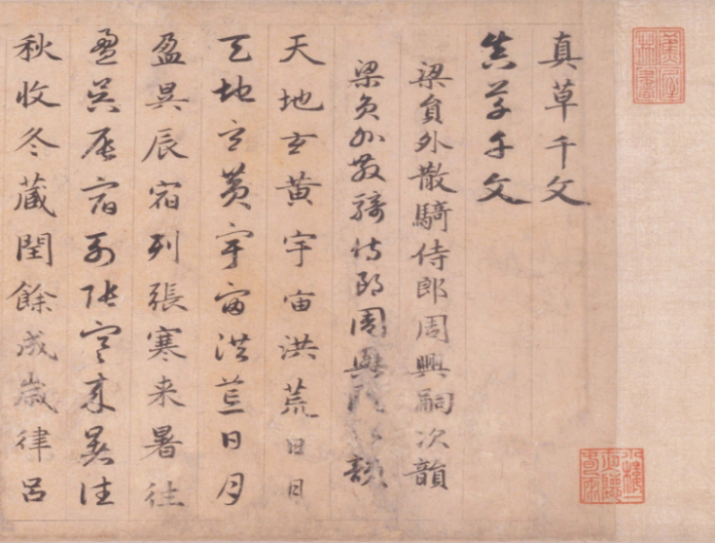 真草千文
真草千文
梁員外散騎侍郎周興嗣次韻
梁員外散騎侍郎周興嗣次韻
天地玄黃宇宙洪荒日月
天地玄黃宇宙洪荒日月
盈昃辰宿列張寒来暑往
盈昃辰宿列張寒來暑往
秋收冬藏閏餘成歲律呂